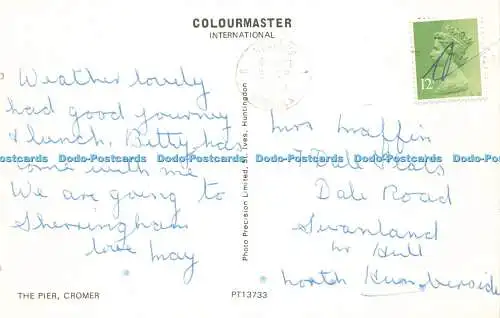 COLOURMASTER
INTERNATIONAL
12
Weather lovely
had good journey
& lunch, Betty has
come with me
We are going to
Sherringham
love May
Photo Precision Limited, St. Ives, Huntingdon
Mrs Maffin
7 Dale Flats
Dale Road
Swanland
nr Hull
North Humberside
Dodo-Postcards Dodo-Postcards Dodo-Postcards Dodo-Postcards Dodo-Postcards Dodo-Postcards
THE PIER, CROMER
PT13733